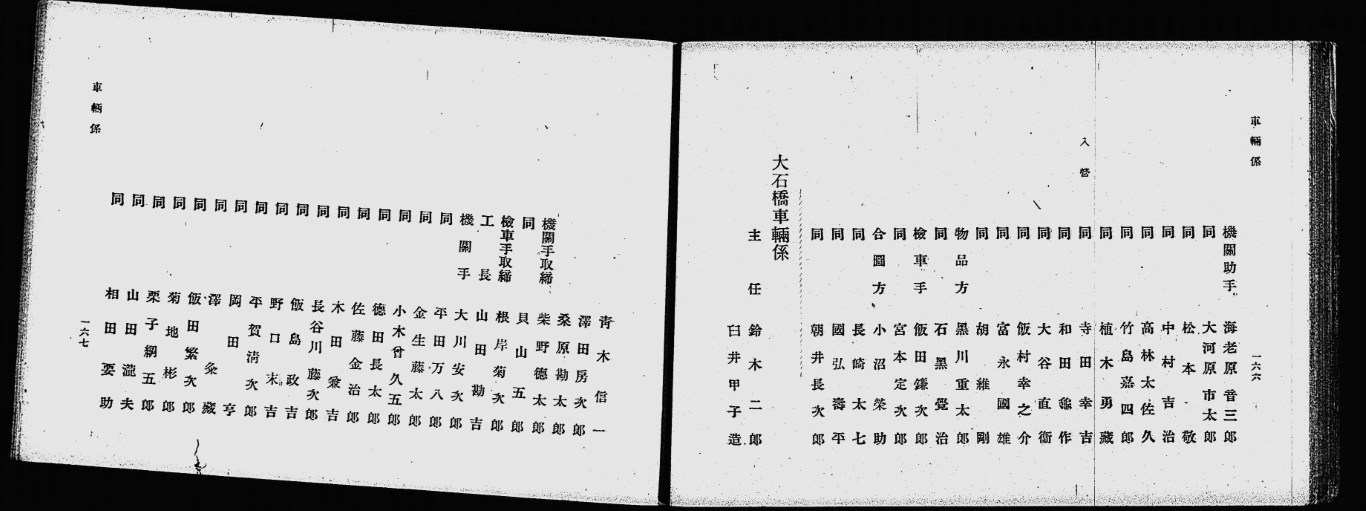 車輛係
一六六
機關助手 海老原音三郎
同 大河原市太郎
同 松本敬
同 中村吉治
同 高林太佐久
同 竹島嘉四郎
同 植木勇藏
入營 同 寺田幸吉
同 和田龜作
同 大谷直衞
同 飯村幸之介
同 富永國雄
同 胡維剛
物品方 黑川重太郎
同 石黑覺治
檢車手 飯田鎌次郎
同 宮本定次郎
合圖方 小沼榮助
同 長崎太七
同 國弘壽平
同 朝井長次郎
大石橋車輛係
主任 鈴木二郎
臼井甲子造
青木信一
澤田房次郎
機關手取締 桑原勘太郎
同 柴野德太郎
檢車手取締 貝山五郎
工長 根岸菊次郎
機關手 山田勘吉
同 大川安次郎
同 平田万八郎
同 金生藤太郎
同 小木曾久五郎
同 德田長太郎
同 佐藤金治郎
同 木田兼吉
同 長谷川藤次郎
同 飯島政吉
同 野口末吉
同 平賀淸次郎
同 岡田亨
同 澤粂藏
同 飯田繁次郎
同 菊地彬郎
同 栗子綱五郎
同 山田瀧夫
同 相田要助
車輛係
一六七